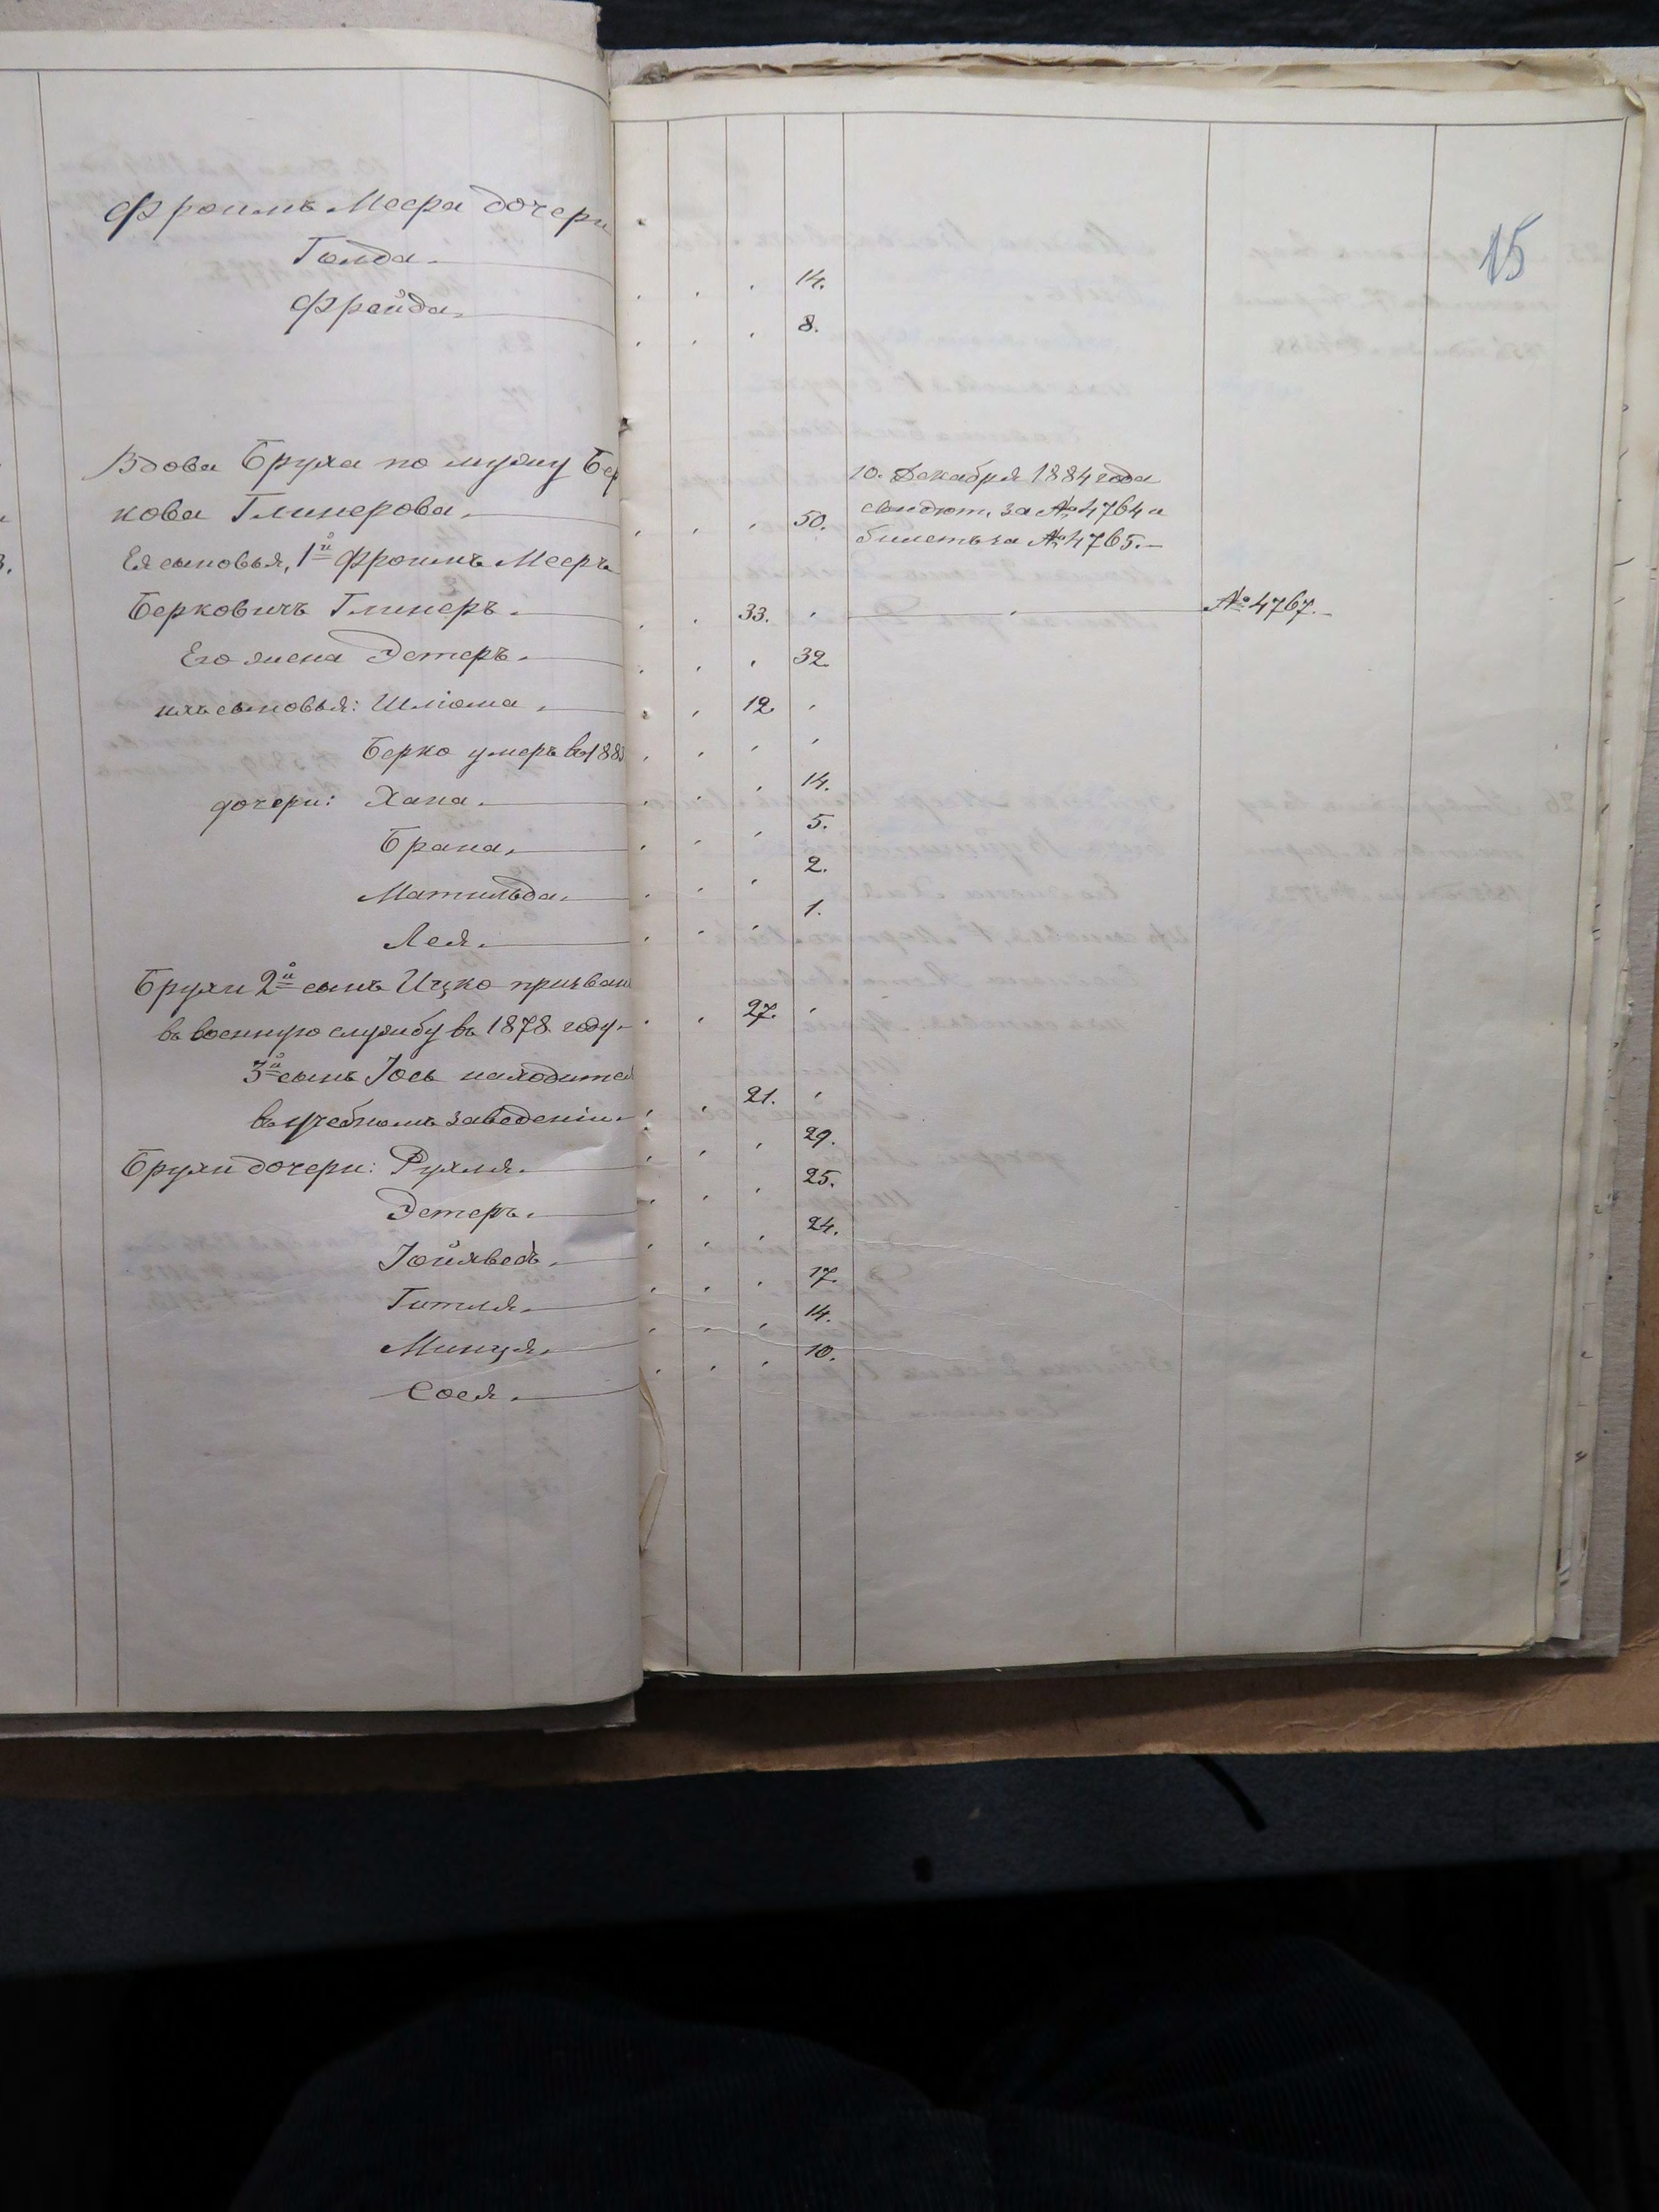 15
Фроимъ Меера дочери
Голда. 14.
Фрейда. 8.
Вдова Бруха по мужу Бер
кова Глинерова. 50.
10. Декабря 1884 года
свидѣт. за № 4764 и
билетъ за № 4765.
Ея сыновья, 1й Фроимъ Мееръ
Берковичъ Глинеръ. 33. № 4767.
Его жена Эстеръ. 32.
ихъ сыновья: Шліома. 12.
Берко умеръ въ 188
дочери: Хана. 14.
Брана. 5.
Матильда. 2.
Лея. 1.
Брухи 2й сынъ Ицко призван
въ военную службу въ 1878 году. 27.
3й сынъ Іось находится
въ учебномъ заведеніи. 21.
Брухи дочери: Рухля. 29.
Эстеръ. 25.
Іойхведъ. 24.
Гитля. 17.
Минця. 14.
Сося. 10.